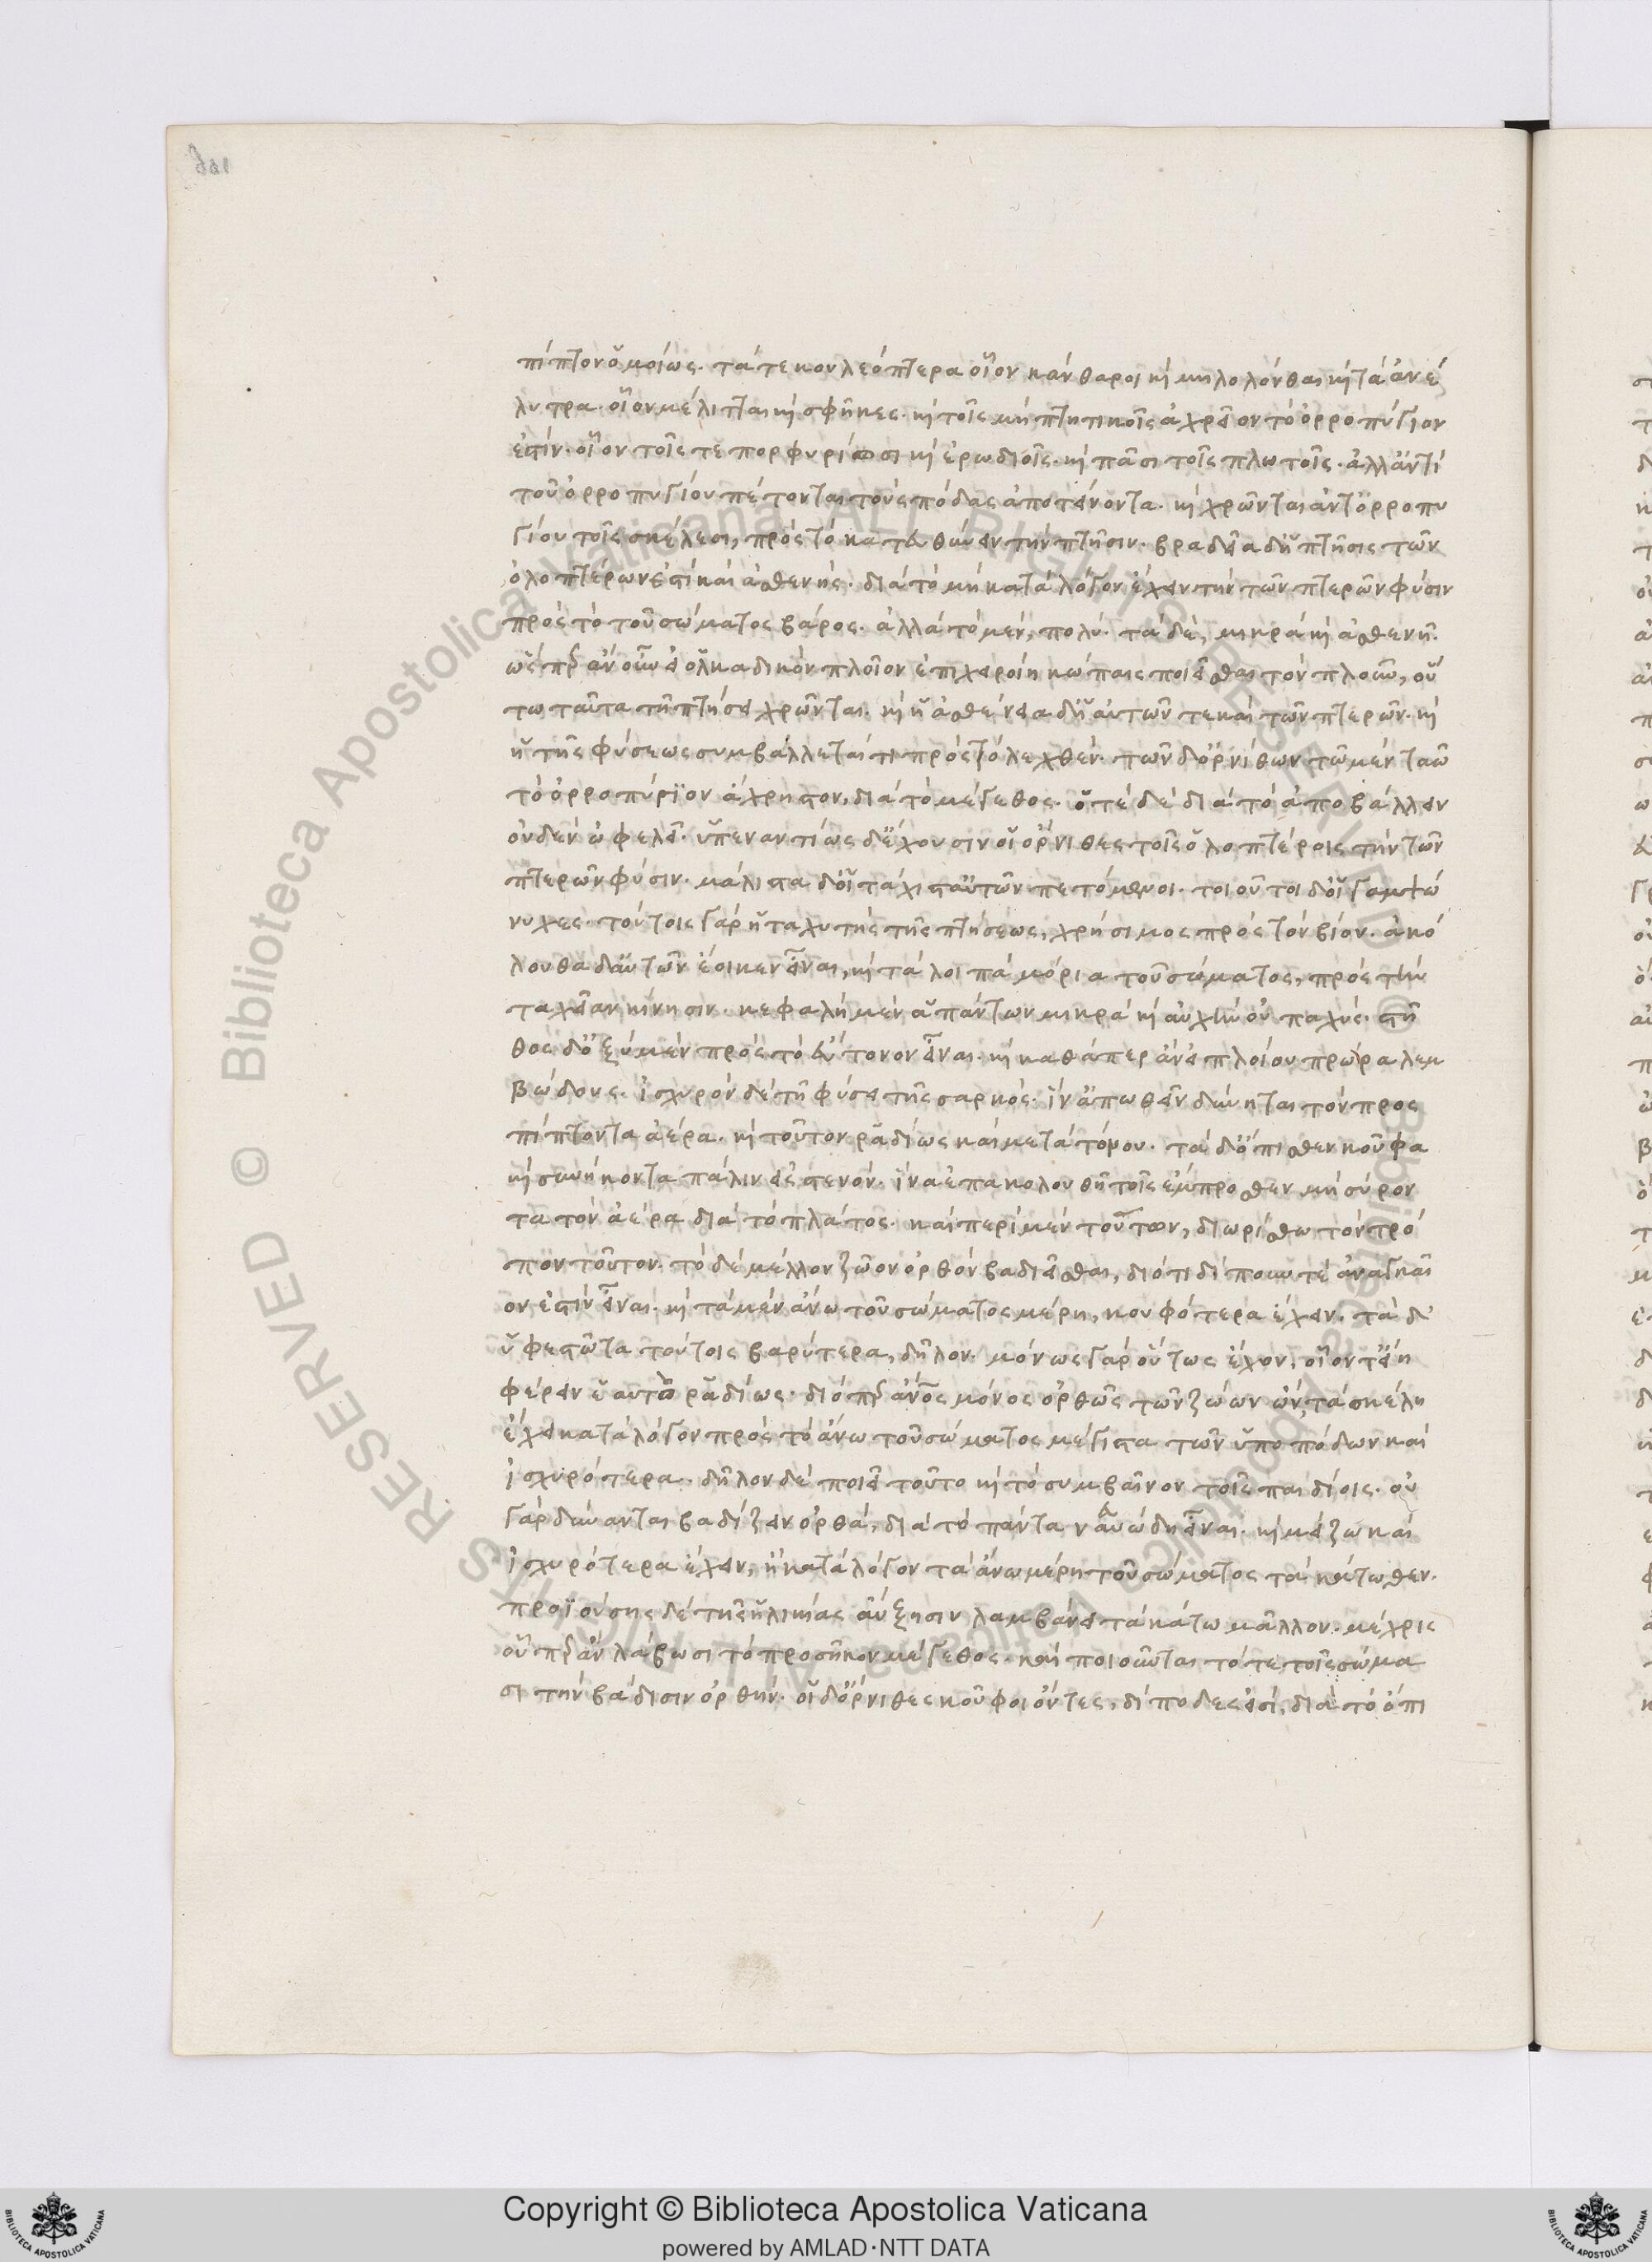 πίπτον ὁμοίως. τά τε κουλεόπτερα οἷον κάνθαροι καὶ μηλολόνθαι καὶ τὰ ἀνέ
λυτρα. οἷον μέλιτται καὶ σφῆκες. καὶ τοῖς μὴ πτητικοῖς ἀχρεῖον τὸ ὀρροπύγιον
ἐστίν. οἷον τοῖς τε πορφυρίωσι καὶ ἐρωδιοῖς. καὶ πᾶσι τοῖς πλωτοῖς. ἀλλ' ἀντὶ
τοῦ ὀρροπυγίου πέτονται τοὺς πόδας ἀποτείνοντα. καὶ χρῶνται ἀντ' ὀρροπυ
γίου τοῖς σκέλεσι, πρὸς τὸ κατευθύνειν τὴν πτῆσιν. βραδεῖα δ' ἡ πτῆσις τῶν
ὁλοπτέρων ἐστὶ καὶ ἀσθενής. διὰ τὸ μὴ κατὰ λόγον ἔχειν τὴν τῶν πτερῶν φύσιν
πρὸς τὸ τοῦ σώματος βάρος. ἀλλὰ τὸ μὲν, πολύ. τὰ δὲ, μικρὰ καὶ ἀσθενῆ.
ὥσπερ ἂν οὖν εἰ ὁλκαδικὸν πλοῖον ἐπιχειροίη κώπαις ποιεῖσθαι τὸν πλοῦν, οὕ
τω ταῦτα τῇ πτήσει χρῶνται. καὶ ἡ ἀσθένεια δ' ἡ αὐτῶν τε καὶ τῶν πτερῶν. καὶ
ἡ τῆς φύσεως συμβάλλεταί τι πρὸς τὸ λεχθέν. τῶν δ' ὀρνίθων τῷ μὲν ταῷ
τὸ ὀρροπύγιον ἄχρηστον, διὰ τὸ μέγεθος. ὁτὲ δὲ διὰ τὸ ἀποβάλλειν
οὐδὲν ὠφελεῖ. ὑπεναντίως δ' ἔχουσιν οἱ ὄρνιθες τοῖς ὁλοπτέροις τὴν τῶν
πτερῶν φύσιν. μάλιστα δ' οἱ τάχιστα αὐτῶν πετόμενοι. τοιοῦτοι δ' οἱ γαμψώ
νυχες. τούτοις γὰρ ἡ ταχυτὴς τῆς πτήσεως, χρήσιμος πρὸς τὸν βίον. ἀκό
λουθα δ' αὐτῶν ἔοικεν εἶναι, καὶ τὰ λοιπὰ μόρια τοῦ σώματος, πρὸς τὴν
ταχεῖαν κίνησιν. κεφαλὴ μὲν ἁπάντων μικρὰ καὶ αὐχὴν οὐ παχύς. στῆ
θος δ' ὀξὺ μὲν πρὸς τὸ εὔτονον εἶναι. καὶ καθάπερ ἂν εἰ πλοίου πρῶρα λεμ
βώδους. ἰσχυρὸν δὲ τῇ φύσει τῆς σαρκός. ἵν' ἀπωθεῖν δύνηται τὸν προς
πίπτοντα ἀέρα. καὶ τοῦτον ῥᾳδίως καὶ μετὰ τόνου. τὰ δ' ὄπισθεν κοῦφα
καὶ συνήκοντα πάλιν εἰς στενόν. ἵνα ἐπακολουθῇ τοῖς ἔμπροσθεν μὴ σύρον
τα τὸν ἀέρα διὰ τὸ πλάτος. καὶ περὶ μὲν τούτων, διωρίσθω τὸν τρό
πον τοῦτον. τὸ δὲ μέλλον ζῷον ὀρθὸν βαδιεῖσθαι, διότι δίπουν τε ἀναγκαῖ
ον ἐστὶν εἶναι. καὶ τὰ μὲν ἄνω τοῦ σώματος μέρη, κουφότερα ἔχειν. τὰ δ'
ὑφεστῶτα τούτοις βαρύτερα, δῆλον. μόνως γὰρ οὕτως ἔχον, οἷόν τ' εἴη
φέρειν ἑαυτὸ ῥᾳδίως. διόπερ ἄνθρωπος μόνος ὀρθῶς τῶν ζώων ὢν, τὰ σκέλη
ἔχει κατὰ λόγον πρὸς τὸ ἄνω τοῦ σώματος μέγιστα τῶν ὑποπόδων καὶ
ἰσχυρότερα. δῆλον δὲ ποιεῖ τοῦτο καὶ τὸ συμβαῖνον τοῖς παιδίοις. οὐ
γὰρ δύνανται βαδίζειν ὀρθὰ, διὰ τὸ πάντα ναυώδη εἶναι. καὶ μείζω καὶ
ἰσχυρότερα ἔχειν, ἢ κατὰ λόγον τὰ ἄνω μέρη τοῦ σώματος τὰ κάτωθεν.
προϊούσης δὲ τῆς ἡλικίας αὔξησιν λαμβάνει τὰ κάτω μᾶλλον. μέχρις
οὗπερ ἂν λάβωσι τὸ προσῆκον μέγεθος. καὶ ποιοῦνται τότε τοῖς σώμα
σι τὴν βάδισιν ὀρθήν. οἱ δ' ὄρνιθες κοῦφοι ὄντες, δίποδες εἰσὶ, διὰ τὸ ὄπι
© Biblioteca Apostolica Vaticana ALL RIGHTS RESERVED
Copyright © Biblioteca Apostolica Vaticana
powered by AMLAD·NTT DATA
BIBLIOTECA APOSTOLICA VATICANA